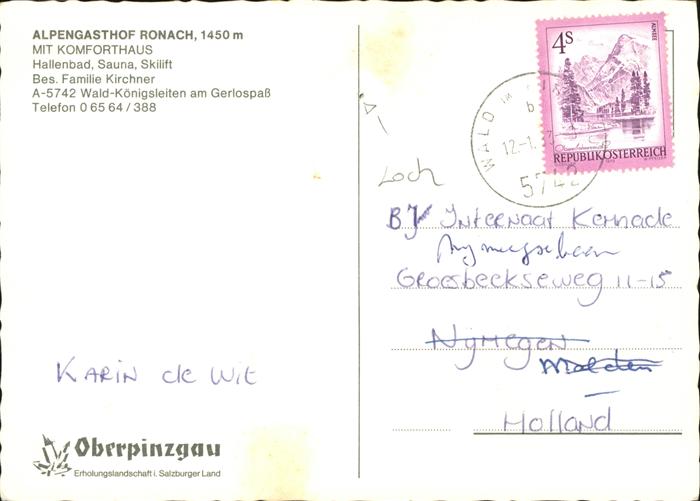 ALPENGASTHOF RONACH, 1450 m
MIT KOMFORTHAUS
Hallenbad, Sauna, Skilift
Bes. Familie Kirchner
A-5742 Wald-Königsleiten am Gerlospaß
Telefon 0 65 64 / 388
4S
ALMSEE
Oberösterreich
REPUBLIK ÖSTERREICH
WALD IM
12.-1.
5742
Loch
Internaat
Groesbeekseweg 11-15
Nijmegen
Malden
Holland
Karin de Wit
Oberpinzgau
Erholungslandschaft i. Salzburger Land